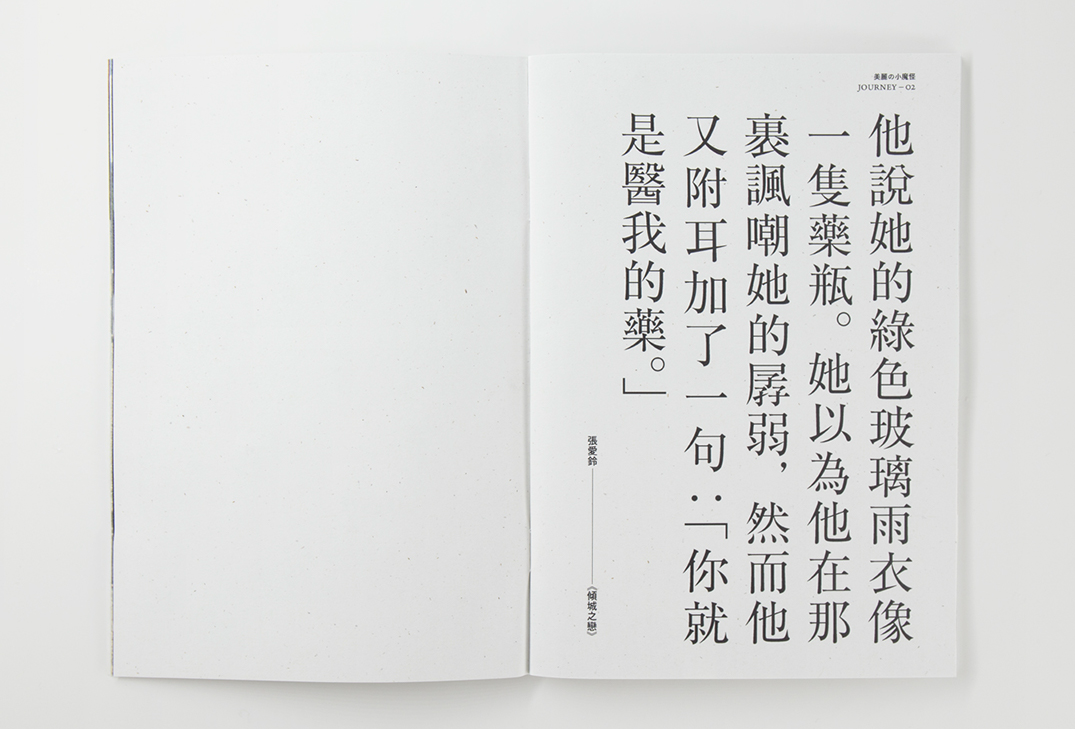 美麗の小魔怪
JOURNEY – 02
他說她的綠色玻璃雨衣像
一隻藥瓶。她以為他在那
裏諷嘲她的孱弱，然而他
又附耳加了一句：「你就
是醫我的藥。」
張愛鈴——《傾城之戀》